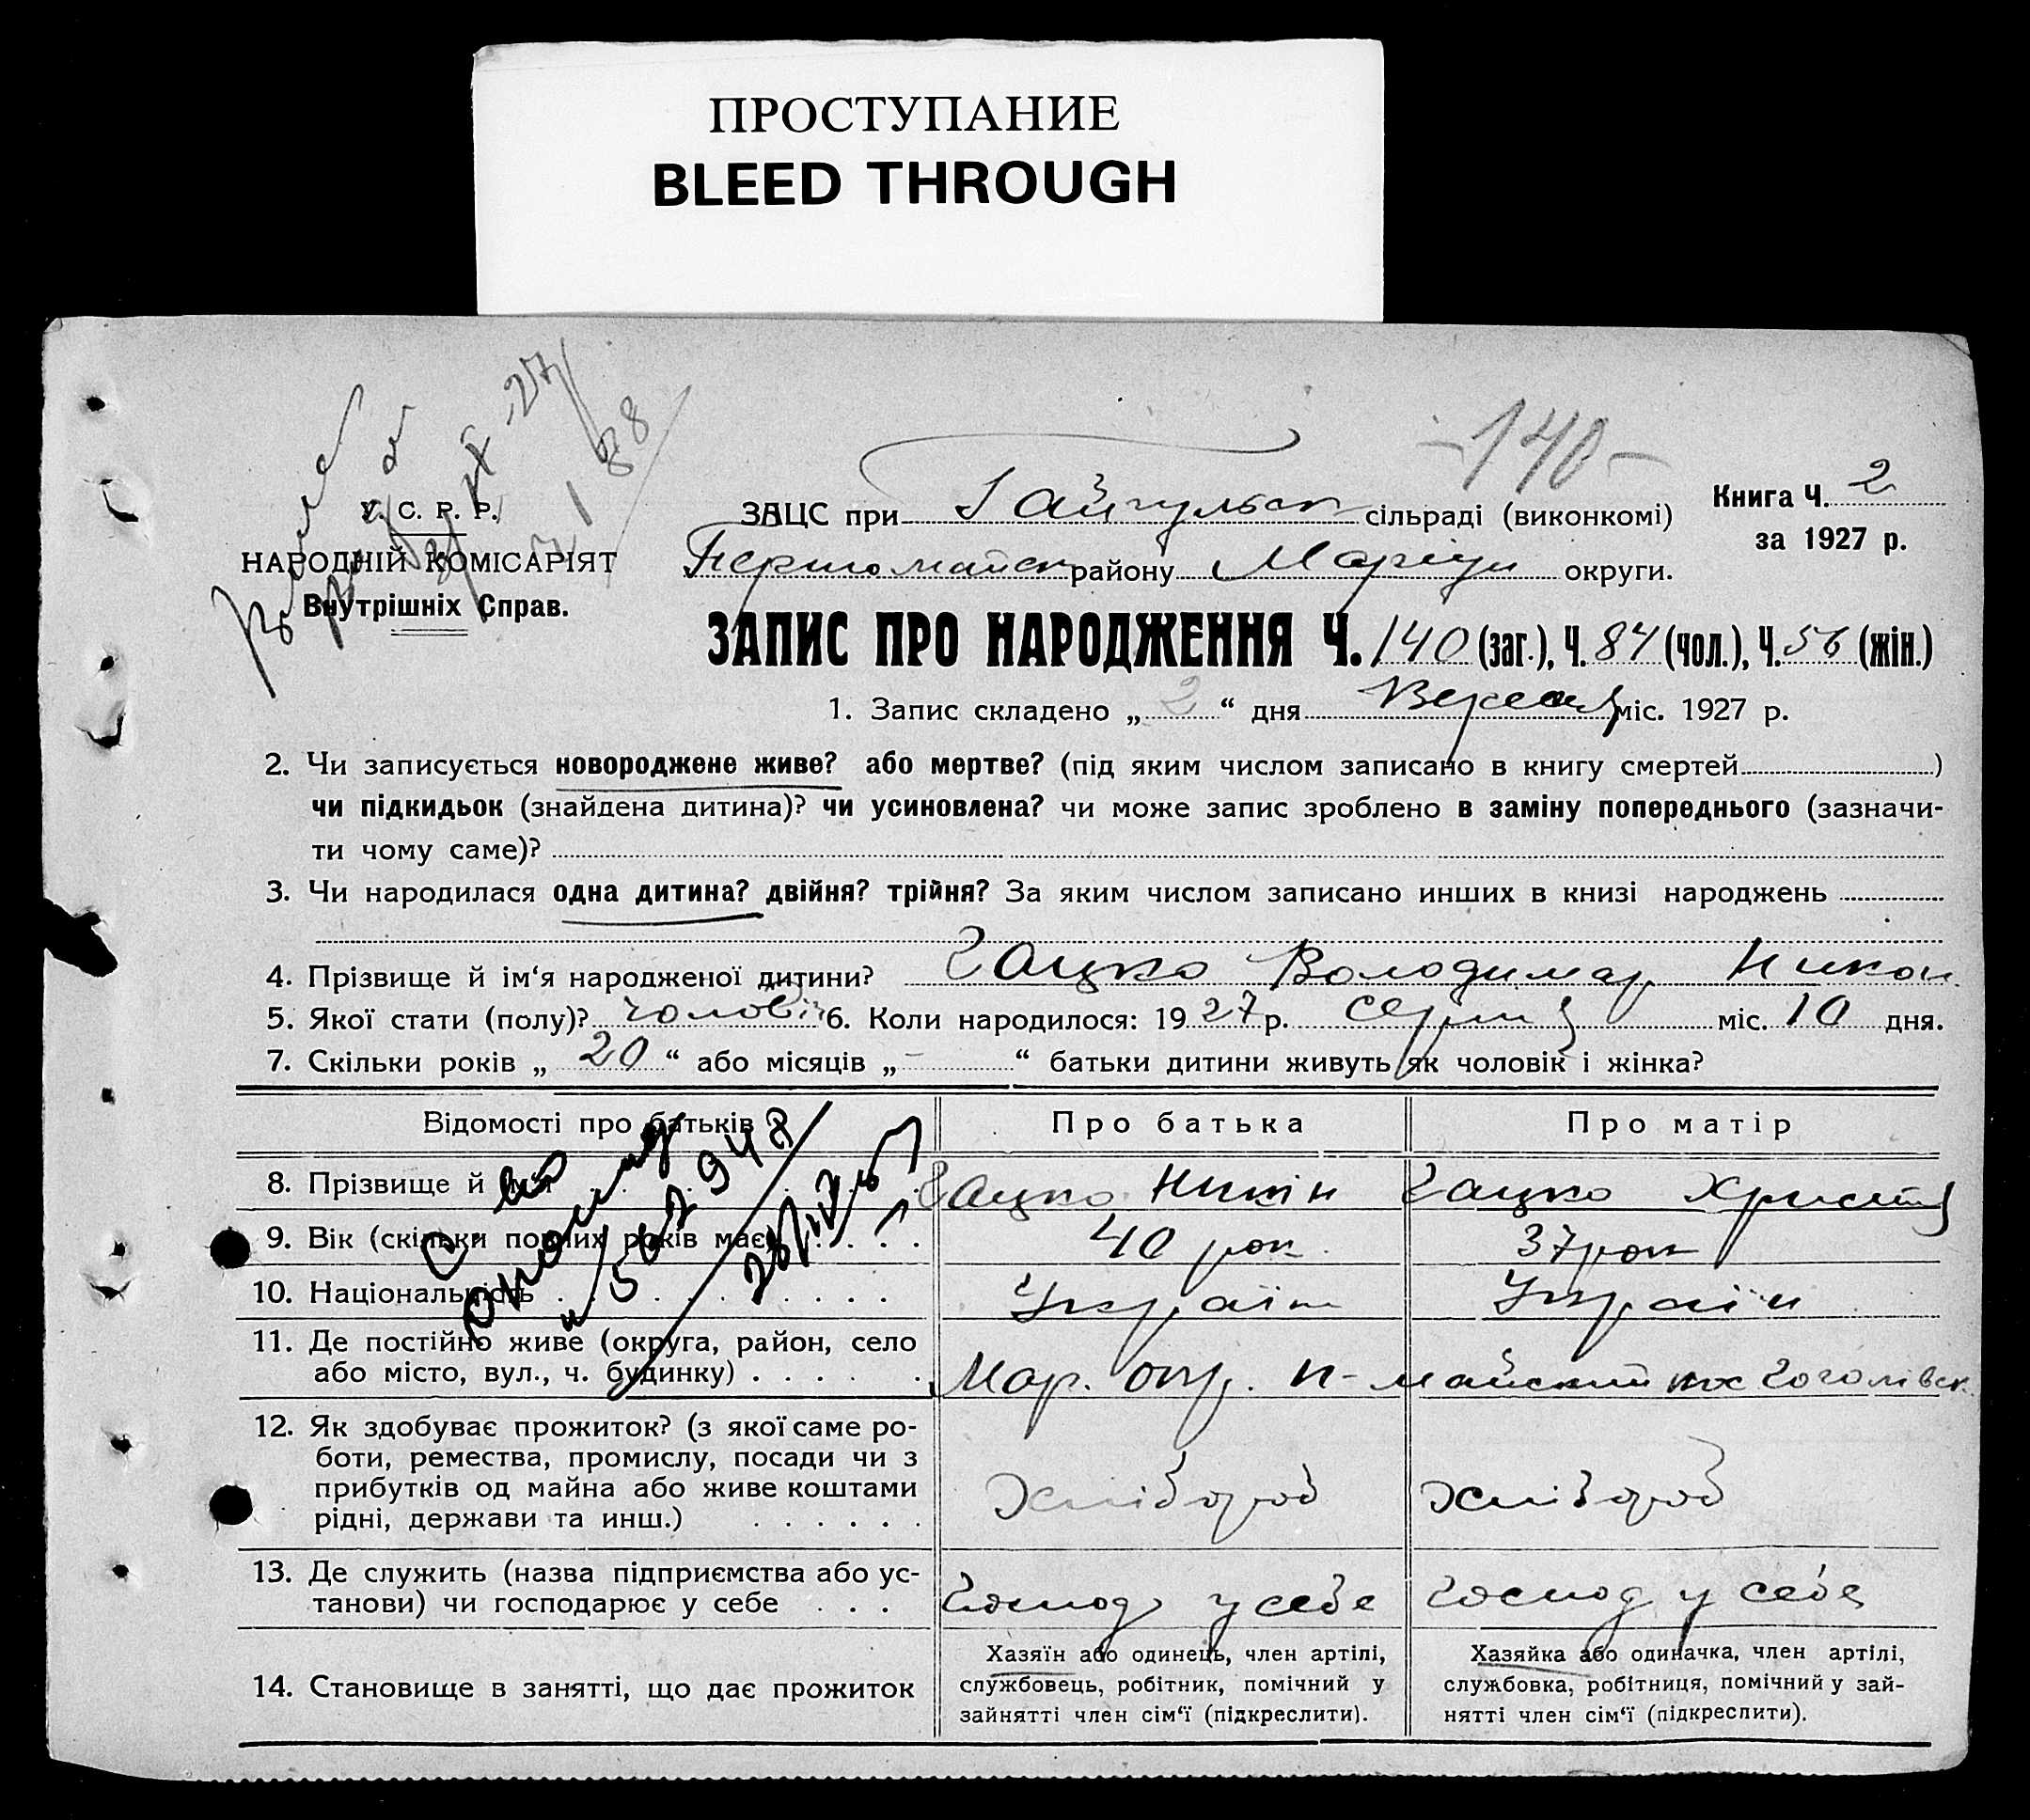 ПРОСТУПАНИЕ
BLEED THROUGH
-140-
У. С. Р. Р.
НАРОДНІЙ КОМІСАРІЯТ
Внутрішніх Справ.
ЗАЦС при Гайчульськ сільраді (виконкомі)
Першомайськ району Маріуп округи.
Книга Ч. 2
за 1927 р.
ЗАПИС ПРО НАРОДЖЕННЯ Ч. 140 (заг.), Ч. 84 (чол.), Ч. 56 (жін.)
1. Запис складено „ 2 “ дня Вересня міс. 1927 р.
2. Чи записується новороджене живе? або мертве? (під яким числом записано в книгу смертей )
чи підкидьок (знайдена дитина)? чи усиновлена? чи може запис зроблено в заміну попереднього (зазначи-
ти чому саме)?
3. Чи народилася одна дитина? двійня? трійня? За яким числом записано инших в книзі народжень
4. Прізвище й ім‘я народженої дитини? Гацко Володимар Никон
5. Якої стати (полу)? чоловіч 6. Коли народилося: 1927 р. серпня міс. 10 дня.
7. Скільки років „ 20 “ або місяців „ - “ батьки дитини живуть як чоловік і жінка?
Відомості про батьків
Про батька
Про матір
8. Прізвище й ім‘я Гацко Никін Гацко Христя
9. Вік (скільки повних років має) 40 рок. 37 рок
10. Національність Україн Україн
11. Де постійно живе (округа, район, село
або місто, вул., ч. будинку) Мар. окр. П-майський Гоголівськ
12. Як здобуває прожиток? (з якої саме ро-
боти, ремества, промислу, посади чи з
прибутків од майна або живе коштами
рідні, держави та инш.)
Хлібороб Хлібороб
13. Де служить (назва підприємства або ус-
танови) чи господарює у себе
Господ у себе Господ у себе
14. Становище в занятті, що дає прожиток
Хазяїн або одинець, член артілі,
службовець, робітник, помічний у
зайнятті член сім‘ї (підкреслити).
Хазяйка або одиначка, член артілі,
службовка, робітниця, помічний у зай-
нятті член сім‘ї (підкреслити).